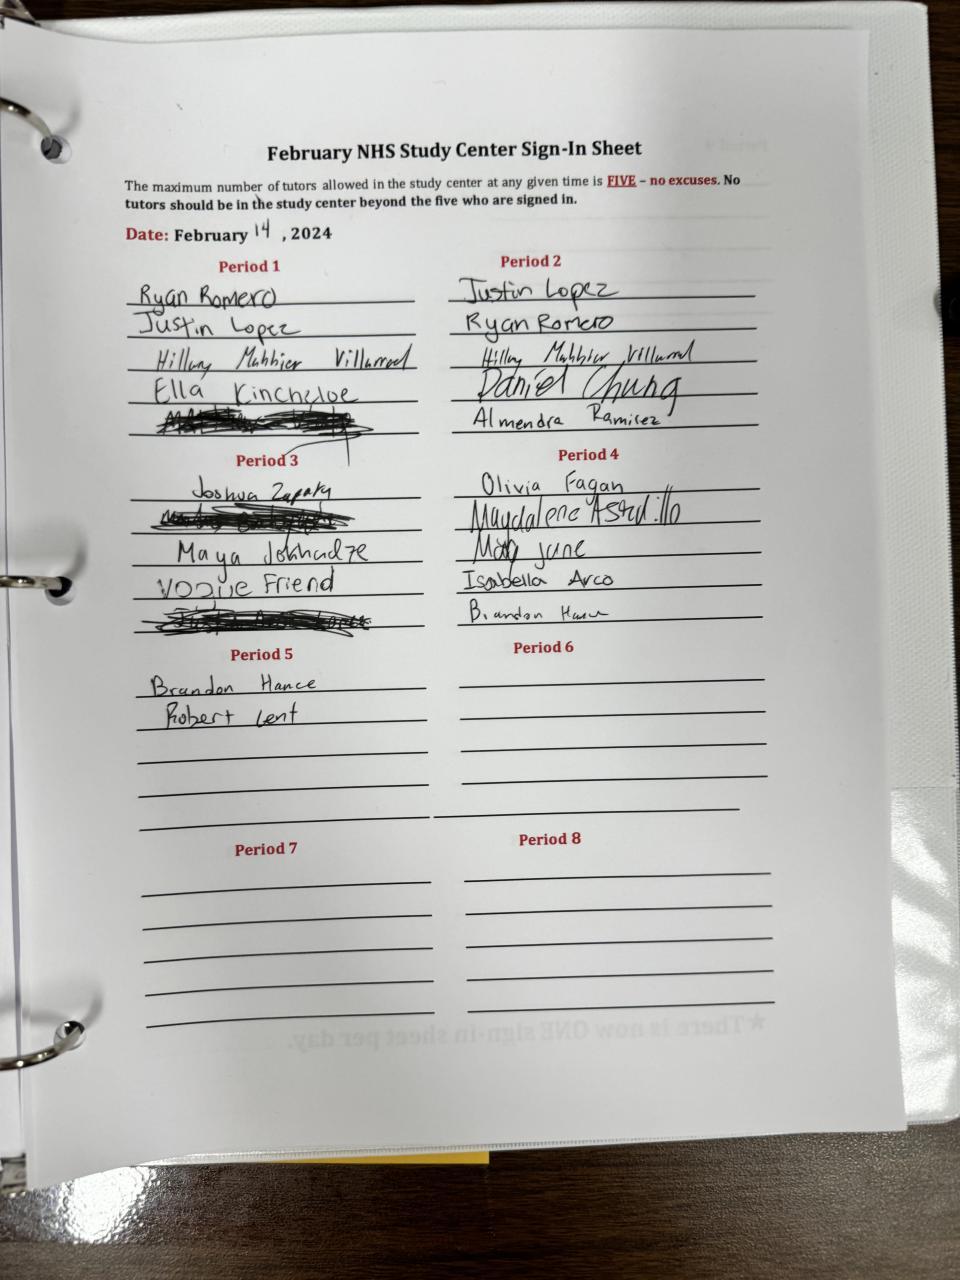 February NHS Study Center Sign-In Sheet
The maximum number of tutors allowed in the study center at any given time is FIVE – no excuses. No
tutors should be in the study center beyond the five who are signed in.
Date: February 14 , 2024
Period 1
Ryan Romero
Justin Lopez
Hillary Villarreal
Ella Kincheloe
Period 2
Justin Lopez
Ryan Romero
Daniel Chung
Almendra Ramirez
Period 3
Joshua
Maya
Vogue Friend
Period 4
Olivia Fagan
June
Isabella Arco
Brandon Hance
Period 5
Brandon Hance
Robert Lent
Period 6
Period 7
Period 8
★There is now ONE sign-in sheet per day.